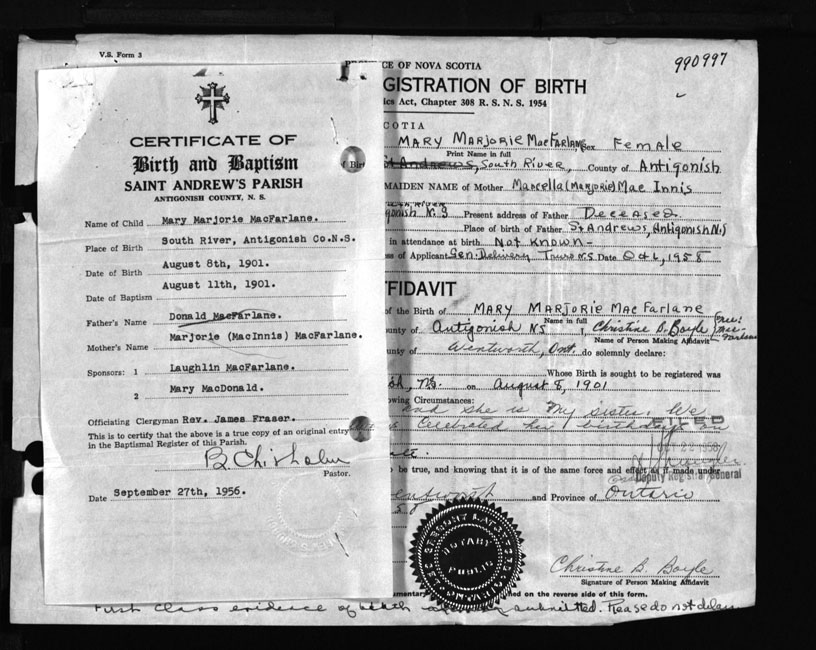 V.S. Form 3
CERTIFICATE OF
Birth and Baptism
SAINT ANDREW'S PARISH
ANTIGONISH COUNTY, N. S.
Name of Child Mary Marjorie MacFarlane.
Place of Birth South River, Antigonish Co.N.S.
Date of Birth August 8th, 1901.
Date of Baptism August 11th, 1901.
Father's Name Donald MacFarlane.
Mother's Name Marjorie (MacInnis) MacFarlane.
Sponsors: 1 Laughlin MacFarlane.
2 Mary MacDonald.
Officiating Clergyman Rev. James Fraser.
This is to certify that the above is a true copy of an original entry
in the Baptismal Register of this Parish.
B. Chisholm
Pastor.
Date September 27th, 1956.
CE OF NOVA SCOTIA
990997
GISTRATION OF BIRTH
ics Act, Chapter 308 R. S. N. S. 1954
COTIA
MARY MARJORIE MACFARLANE, Sex Female
Print Name in full
St Andrews, South River, County of Antigonish
MAIDEN NAME of Mother Marcella (Marjorie) Mac Innis
N.S Present address of Father Deceased.
Place of birth of Father St Andrews, Antigonish N.S
in attendance at birth Not Known-
of Applicant Gen. Delivery Truro N.S. Date Oct 6, 1958
FIDAVIT
of the Birth of MARY MARJORIE MAC FARLANE
Name in full
unty of Antigonish NS, Christine B. Boyle
Name of Person Making Affidavit
unty of Wentworth, Ont. do solemnly declare:
Whose Birth is sought to be registered was
on August 8, 1901
owing Circumstances:
and she is my sister. We
celebrated her birthday on
be true, and knowing that it is of the same force and effect as if made under
Deputy Registrar General
and Province of Ontario
NOTARY
PUBLIC
Christine B. Boyle
Signature of Person Making Affidavit
on the reverse side of this form.
First Class evidence of submitted. Please do not delay